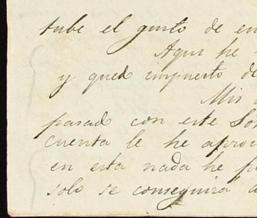 tube el gusto de en
Aqui he
y qued impuesto de
Mis
pasad con este Son
cuenta le he aprov
en esta nada he p
solo se conseguira a